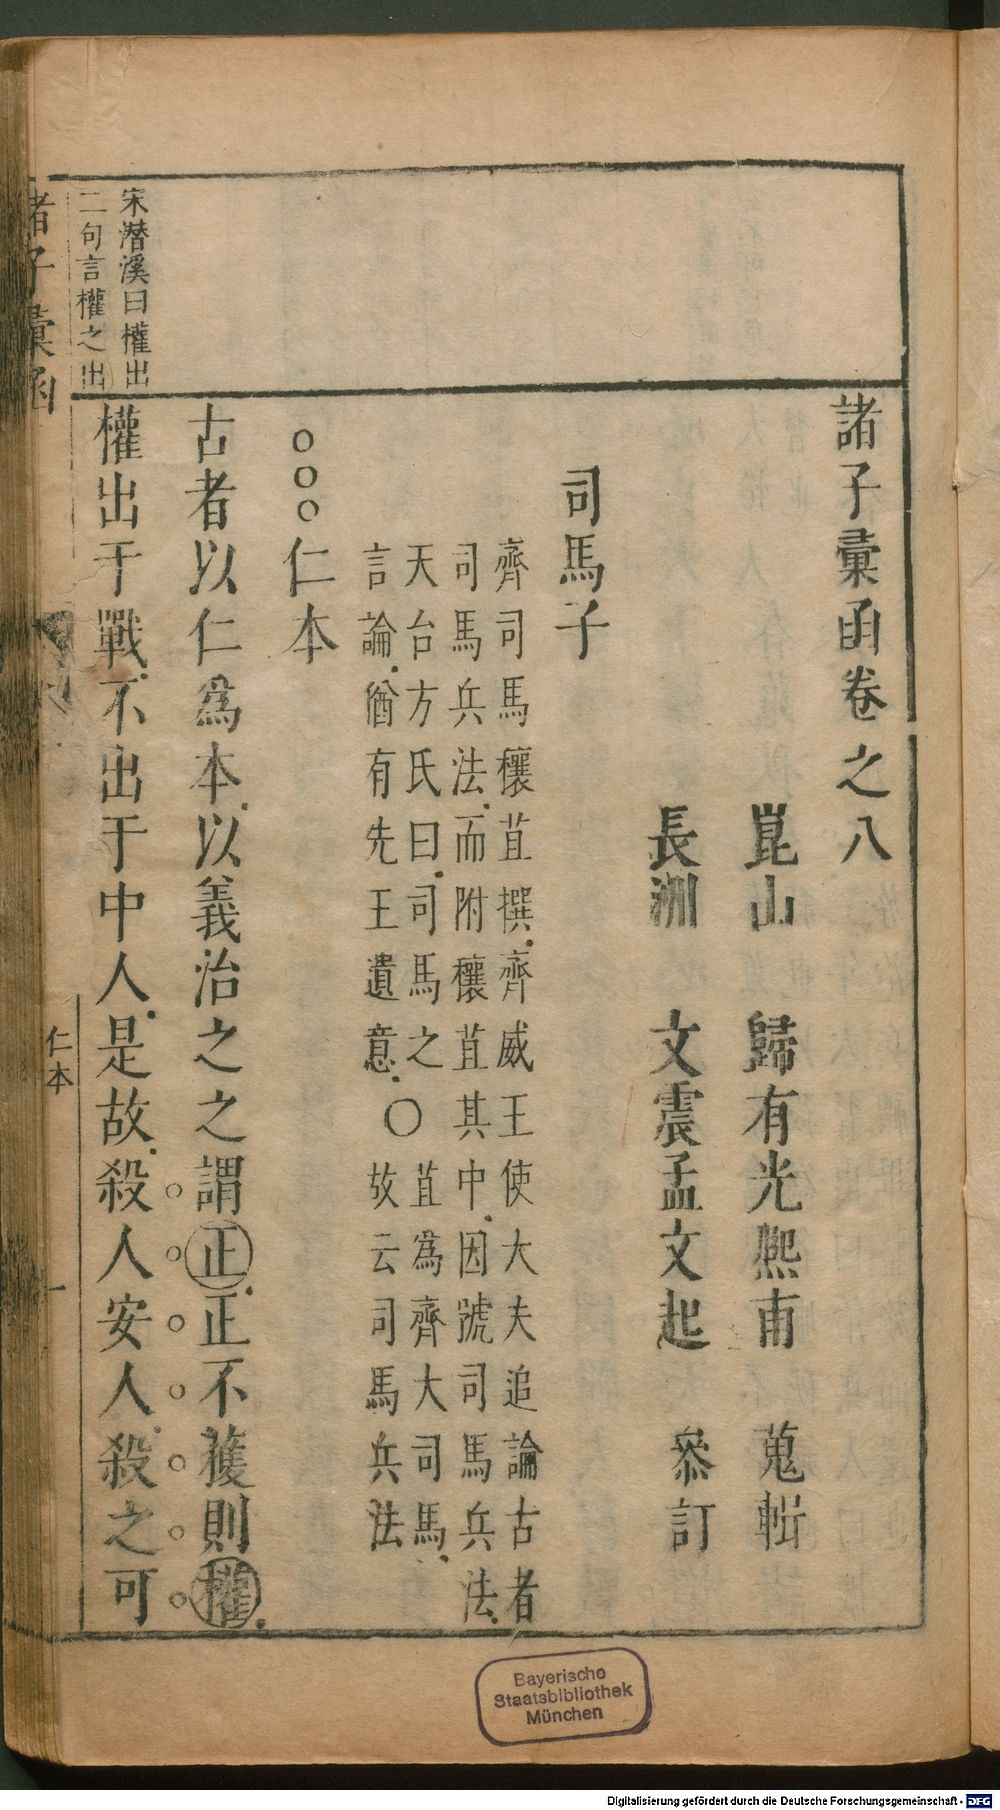 諸子彙函卷之八
崑山 歸有光熙甫 蒐輯
長洲 文震孟文起 叅訂
司馬子
齊司馬穰苴撰齊威王使大夫追論古者
司馬兵法而附穰苴其中因號司馬兵法
天台方氏曰司馬之 苴為齊大司馬
言論猶有先王遺意〇故云司馬兵法
○○○仁本
古者以仁爲本以義治之之謂正正不獲則權
權出于戰不出于中人是故殺人安人殺之可
宋潛溪曰權出
二句言權之出
諸子彙函
仁本
一
Bayerische
Staatsbibliothek
München
Digitalisierung gefördert durch die Deutsche Forschungsgemeinschaft - DFG